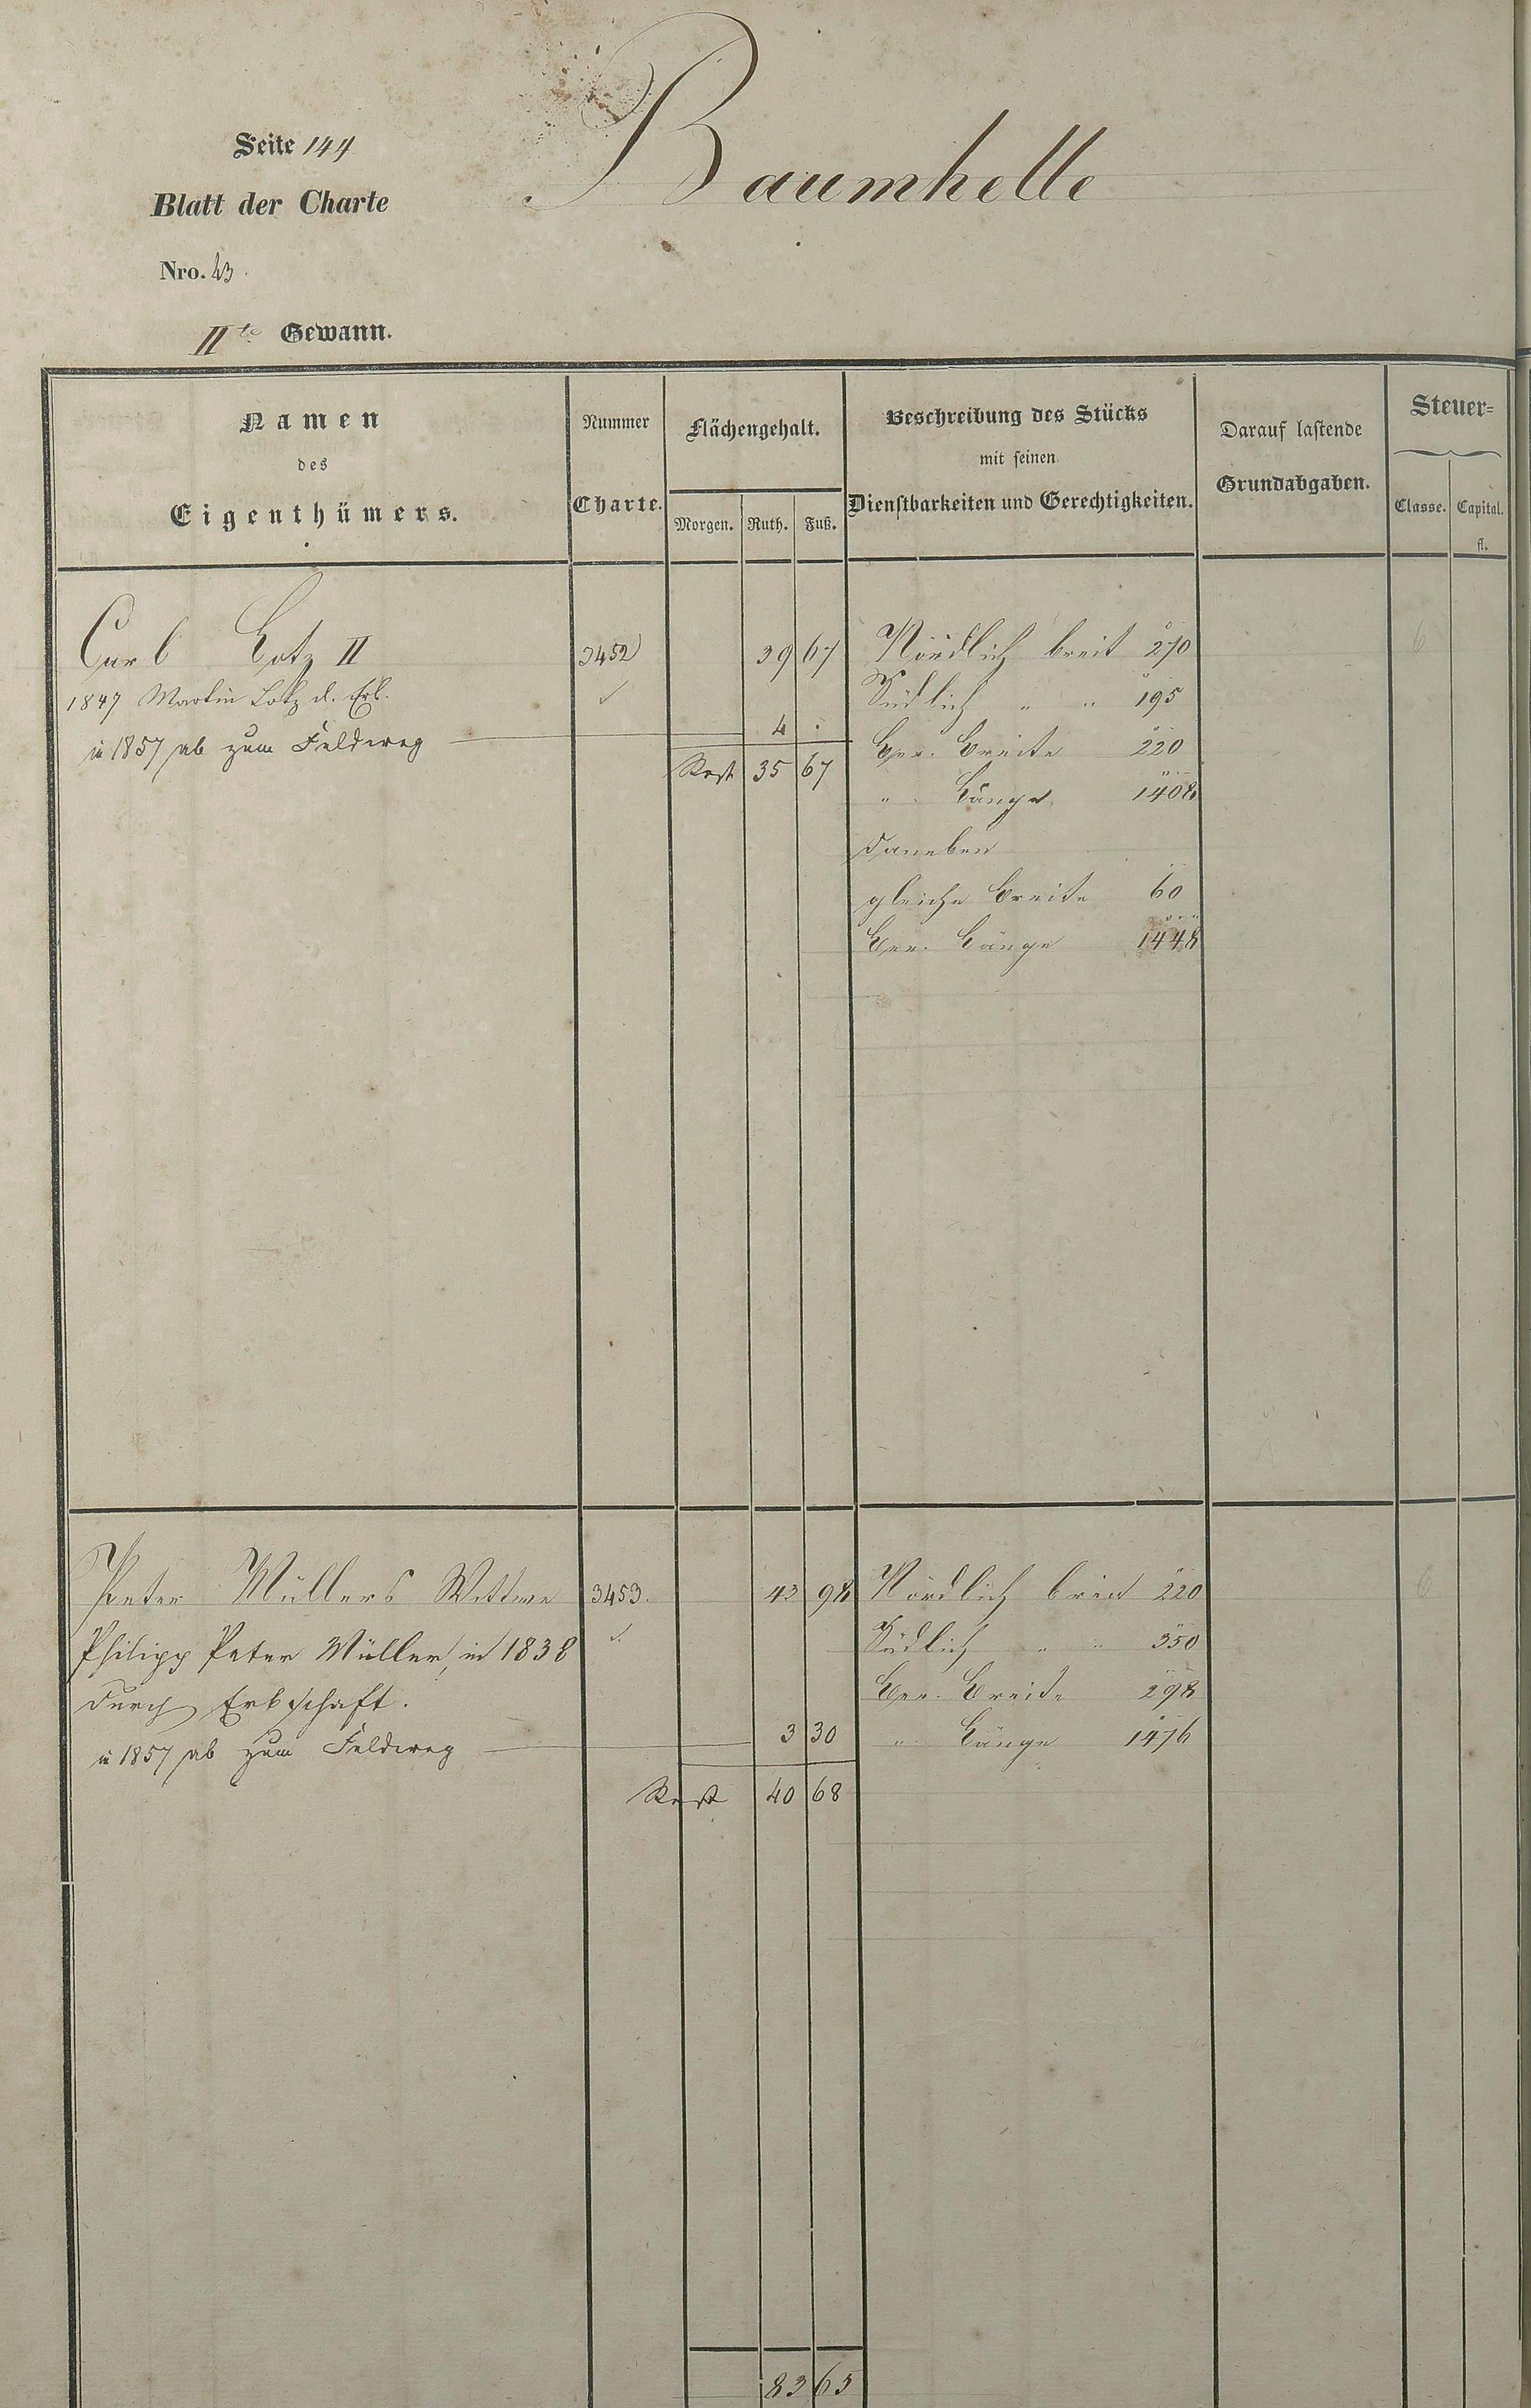 Baumhelle
Seite 144
Blatt der Charte
Nro. 23.
IIte Gewann.
Namen des Eigenthümers.
Nummer Charte.
Flächengehalt.
Morgen. Ruth. Fuß.
Beschreibung des Stücks
mit seinen
Dienstbarkeiten und Gerechtigkeiten.
Darauf lastende
Grundabgaben.
Steuer=
Classe. Capital.
fl.
Carl Lotz II 3452 39 67 Nördlich breit 270 6
1847 Martin Lotz d. Erb. Südlich " " 195
in 1857 ab zum Feldweg 4 . Ger. Breite 220
Rest 35 67
" Länge 1408
daneben
gleiche Breite 60
Ger. Länge 1448
Peter Müllers Wittwe 3453. 43 98 Nördlich breit 220 6
Philipp Peter Müller, in 1838 Südlich " " 350
durch Erbschaft. Ger. Breite 298
in 1857 ab zum Feldweg 3 30 " Länge 1476
Rest 40 68
83 65